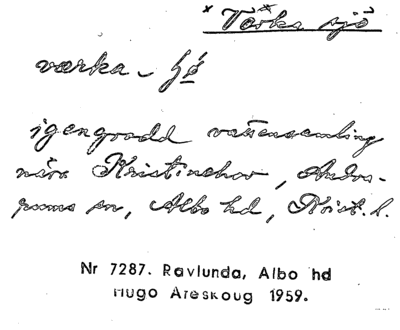 * Tärka sjö
värka - hö
igengrodd vattensamling
nära Kristinehov, Andra-
rums sn, Albo hd, Krist. l.
Nr 7287. Ravlunda, Albo hd
Hugo Areskoug 1959.